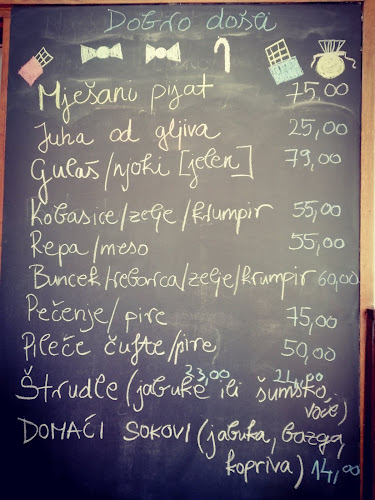 Dobro došli
Mješani pijat 75,00
Juha od gljiva 25,00
Gulaš/njoki [jelen] 79,00
Kobasice/zelje/krumpir 55,00
Repa/meso 55,00
Buncek/rebarica/zelje/krumpir 60,00
Pečenje/pire 75,00
Pileće ćufte/pire 50,00
23,00 21,00
Štrudle (jabuke ili šumsko
voće)
DOMAĆI SOKOVI (jabuka, bazga,
kopriva) 14,00